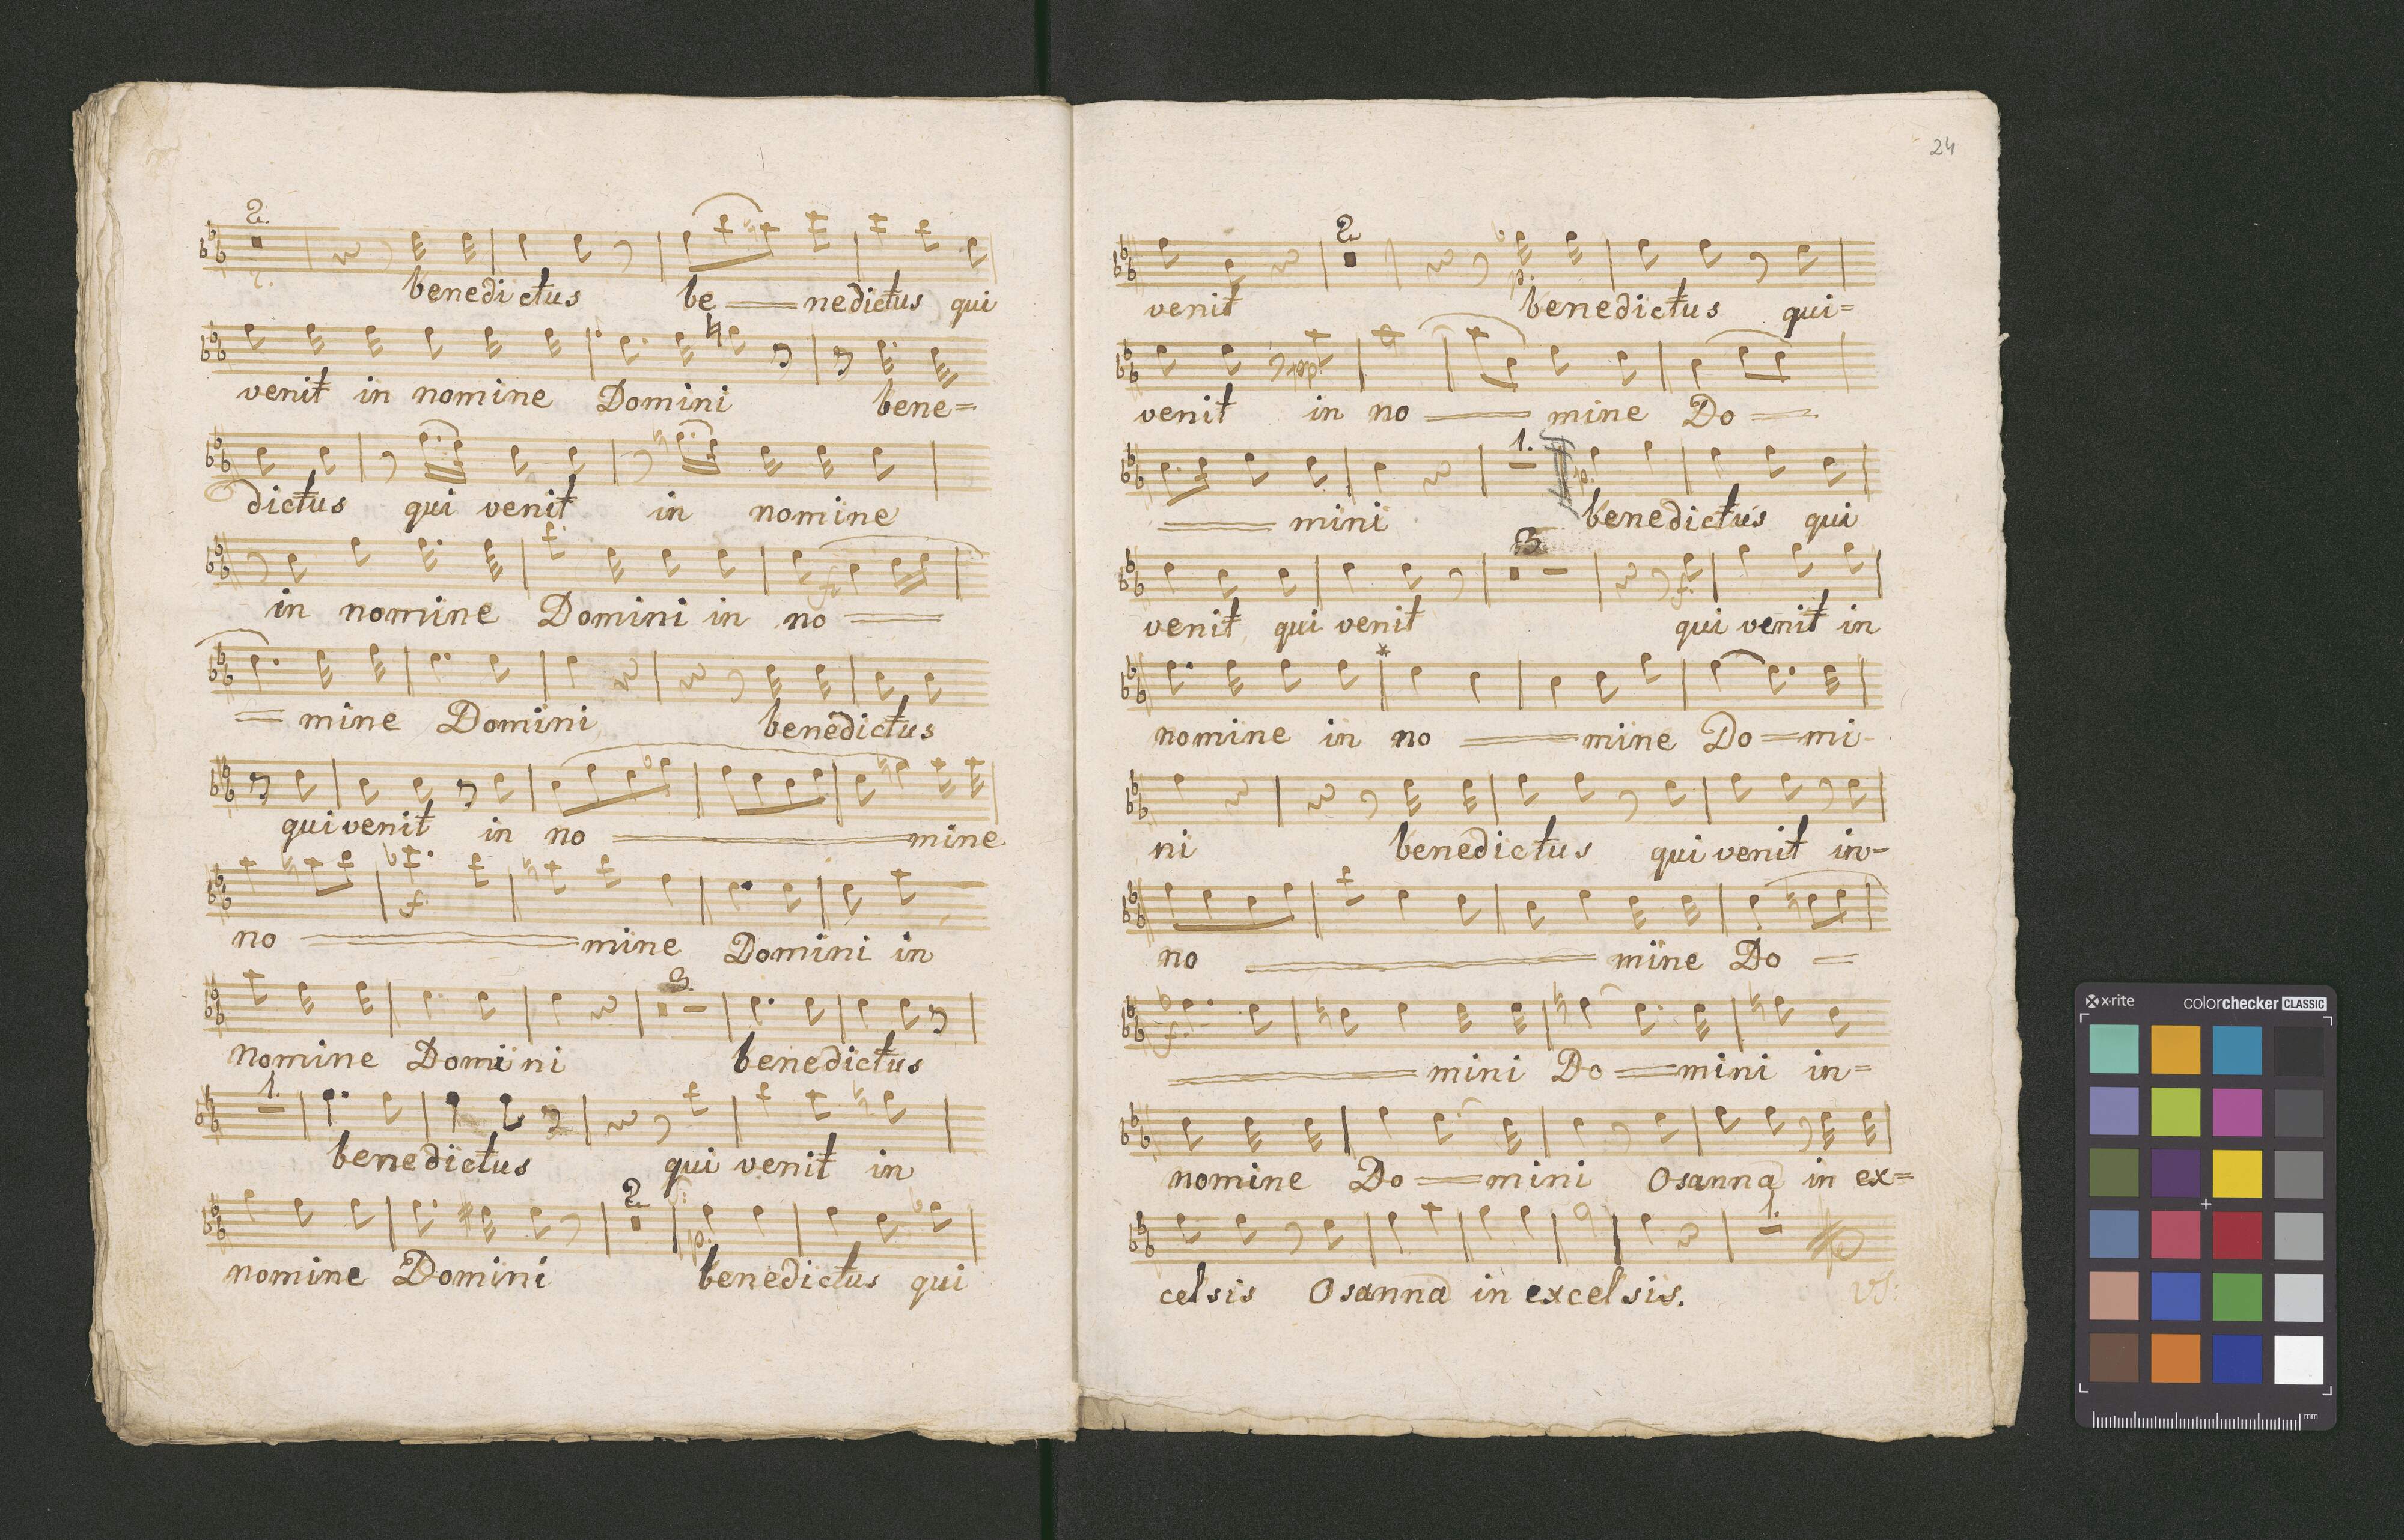 2.
benedictus be nedictus qui
venit in nomine Domini bene=
dictus qui venit in nomine
in nomine Domini in no
mine Domini benedictus
qui venit in no mine
f.
no mine Domini in
3.
nomine Domini benedictus
1.
benedictus qui venit in
2.
p.
nomine Domini benedictus qui
24
2.
p.
venit benedictus qui=
venit in no mine Do
1.
p.
mini benedictus qui
3.
f.
venit qui venit qui venit in
nomine in no mine Do mi-
ni benedictus qui venit in=
no mine Do
f.
mini Do mini in=
nomine Do mini Osanna in ex=
1.
celsis Osanna in excelsis.
VS:
x·rite colorchecker CLASSIC
mm